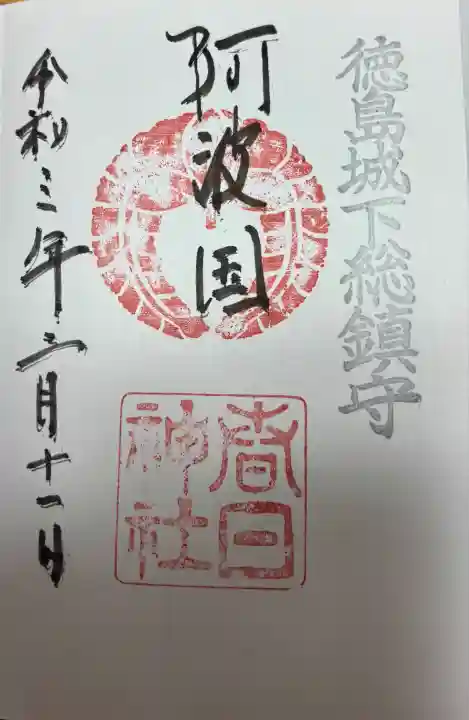 徳島城下総鎮守
阿波国
春日
神社
令和三年三月十一日